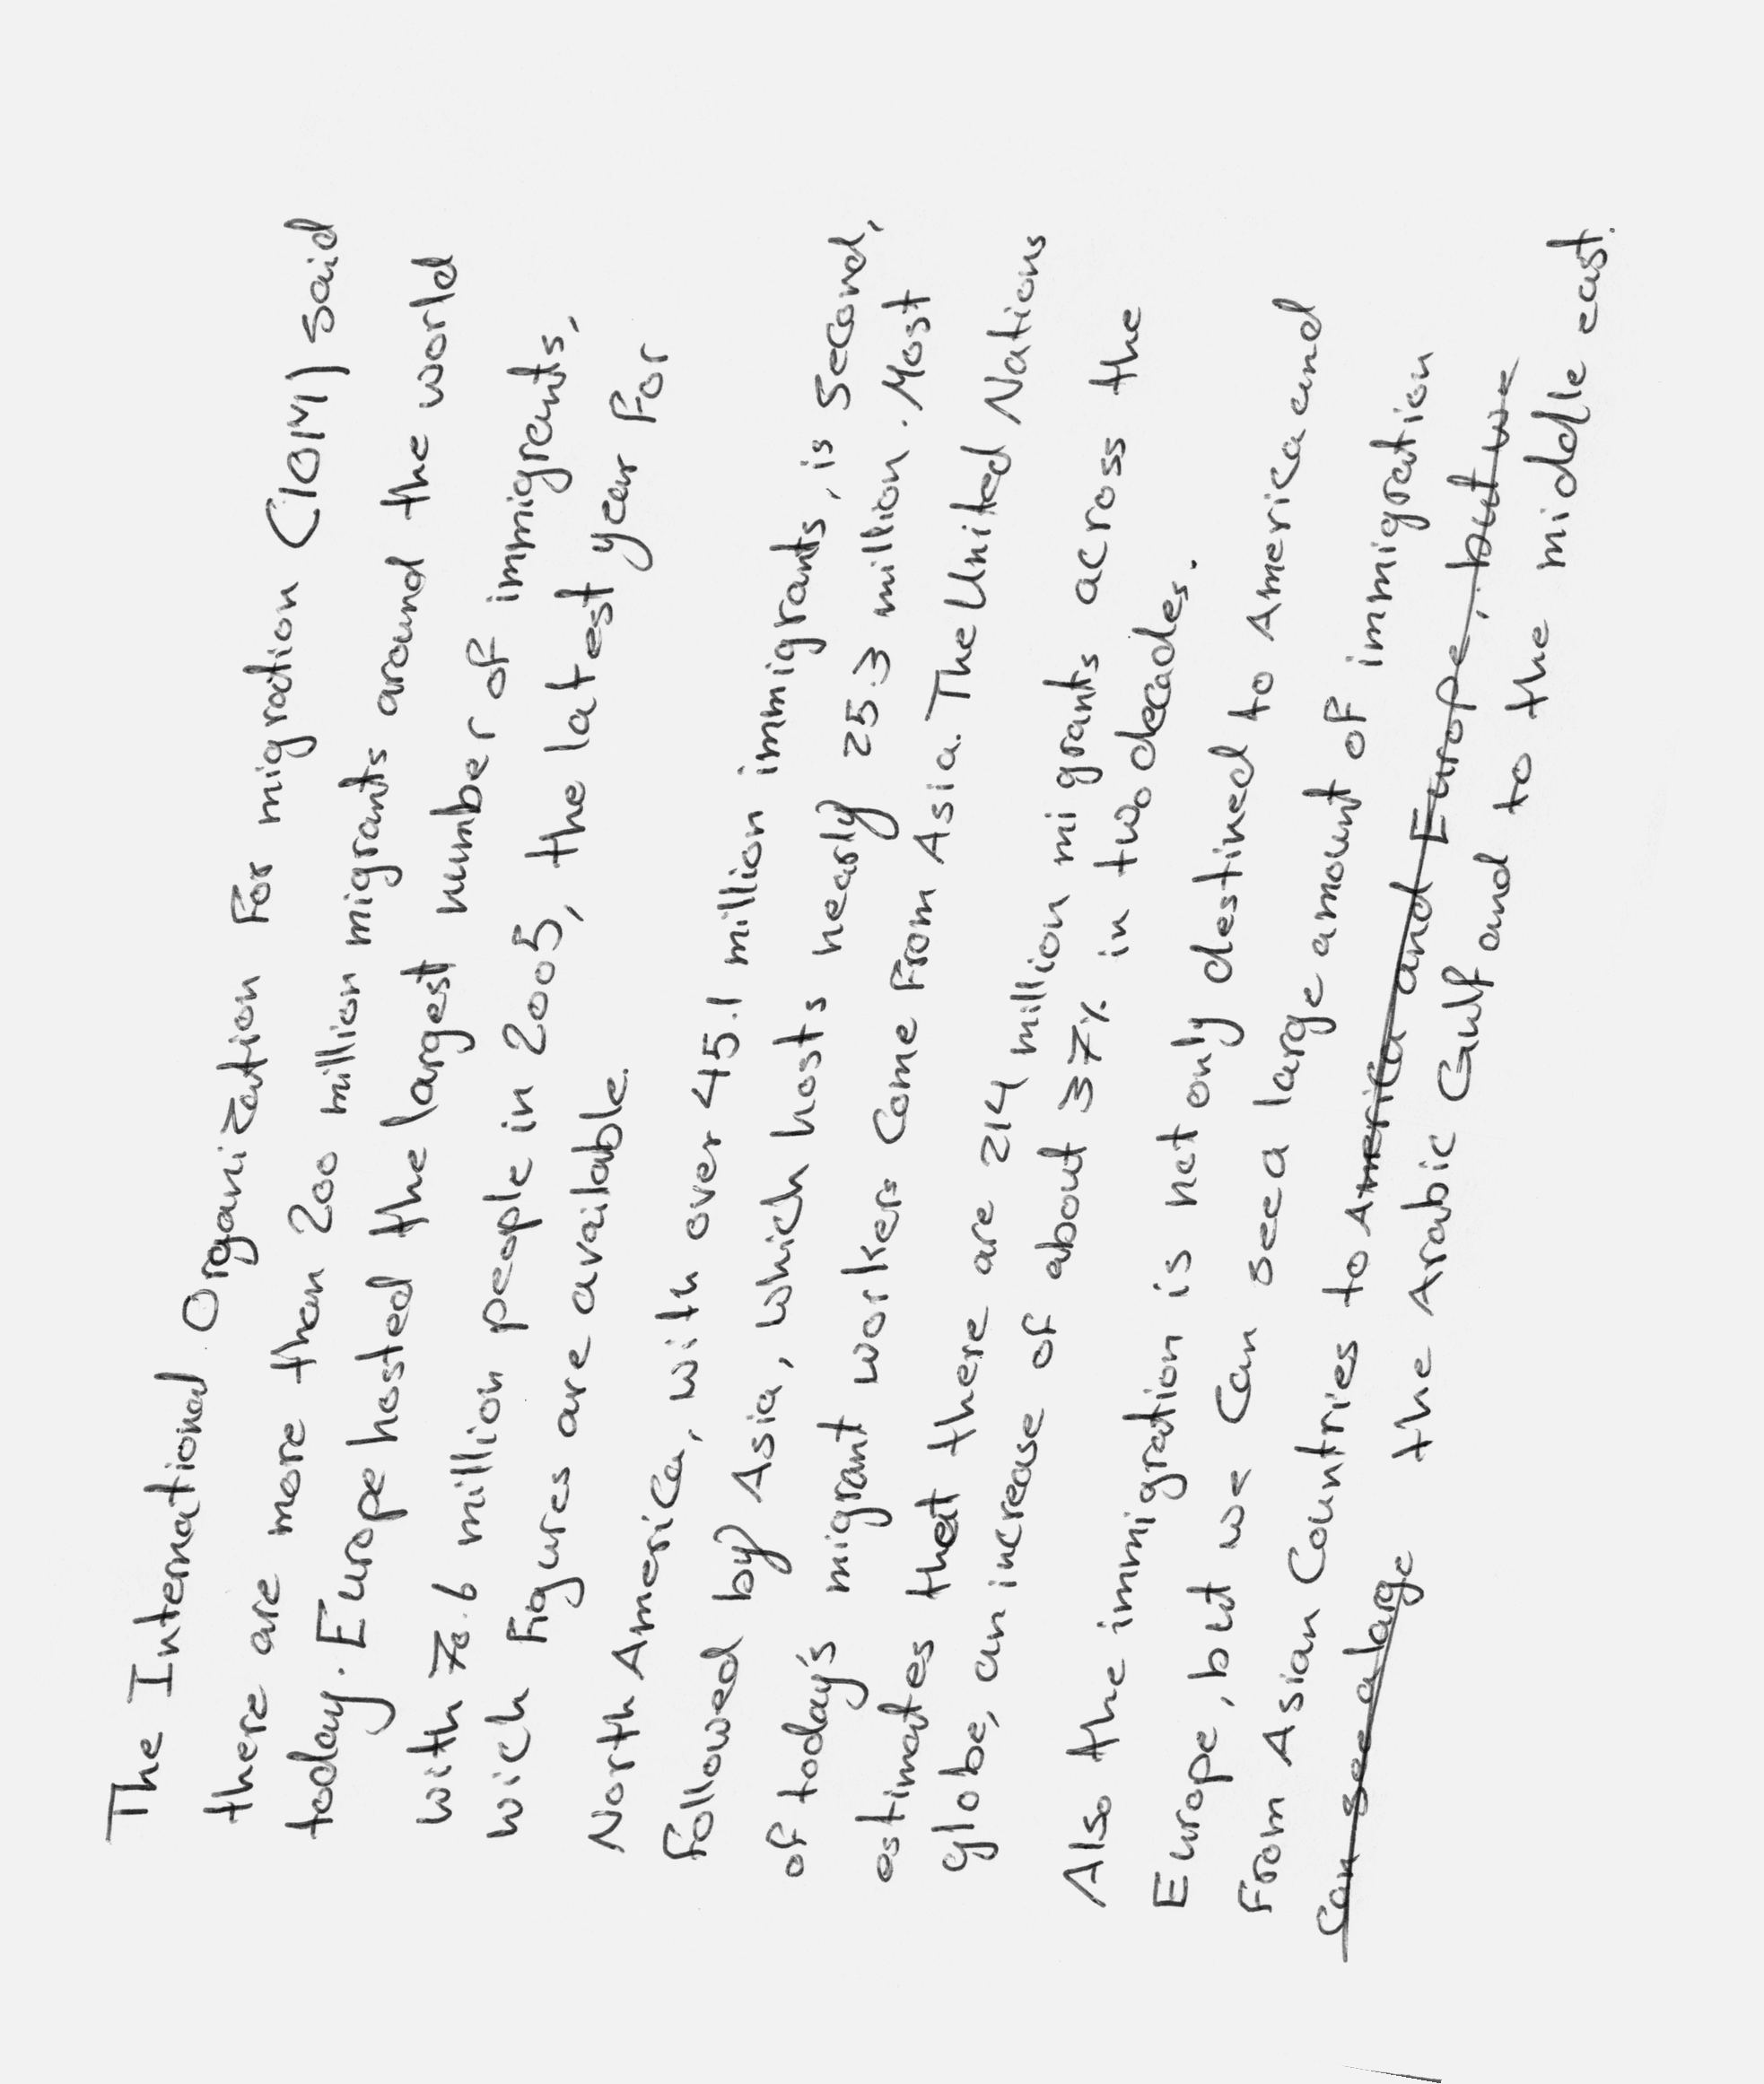 The International Organization For migration (IOM) said
there are more than 200 million migrants around the world
today. Europe hosted the largest number of immigrants,
with 70.6 million people in 2005, the latest year For
wich Figures are available.
North America, with over 45.1 million immigrants, is second,
Followed by Asia, which hosts nearly 25.3 million. Most
of today's migrant workers Come From Asia. The United Nations
estimates that there are 214 million migrants across the
globe, an increase of about 37% in two decades.
Also the immigration is not only destined to America and
Europe, but we Can see a large amount of immigration
From Asian Countries to America and Europe, but we
Can see a large the Arabic Gulf and to the middle east.